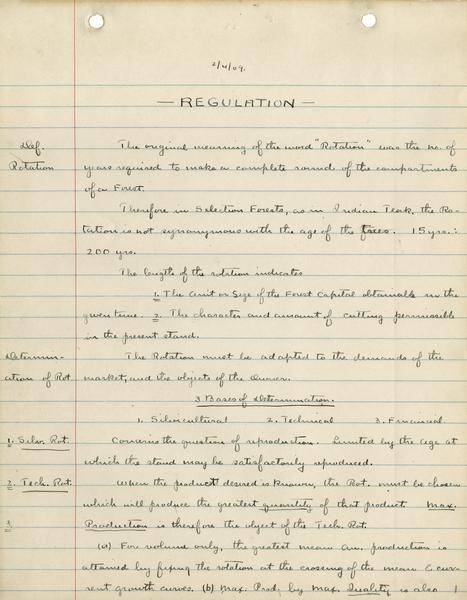 2/4/09.
— REGULATION —
Def. Rotation
The original meaning of the word "Rotation" was the no. of
years required to make a complete round of the compartments
of a Forest.
Therefore in Selection Forests, as in Indian Teak, the Ro-
tation is not synonymous with the age of the trees. 15 yrs.:
200 yrs.
The length of the rotation indicates
1. The Amt or Size of the Forest Capital obtainable in the
given time. 2. The character and amount of cutting permissible
in the present stand.
Determin-
ation of Rot.
The Rotation must be adapted to the demands of the
market, and the objects of the Owner.
3 Bases of Determination.
1. Silvicultural 2. Technical 3. Financial.
1. Silv. Rot.
Concerns the question of reproduction. Limited by the age at
which the stand may be satisfactorily reproduced.
2. Tech. Rot.
When the product desired is known, the Rot. must be chosen
which will produce the greatest quantity of that product Max.
3.
Production is therefore the object of the Tech. Rot.
(a) For volume only, the greatest mean an. production is
attained by fixing the rotation at the crossing of the mean & cur-
rent growth curves. (b) Max. Prod. by Max. Quality is also